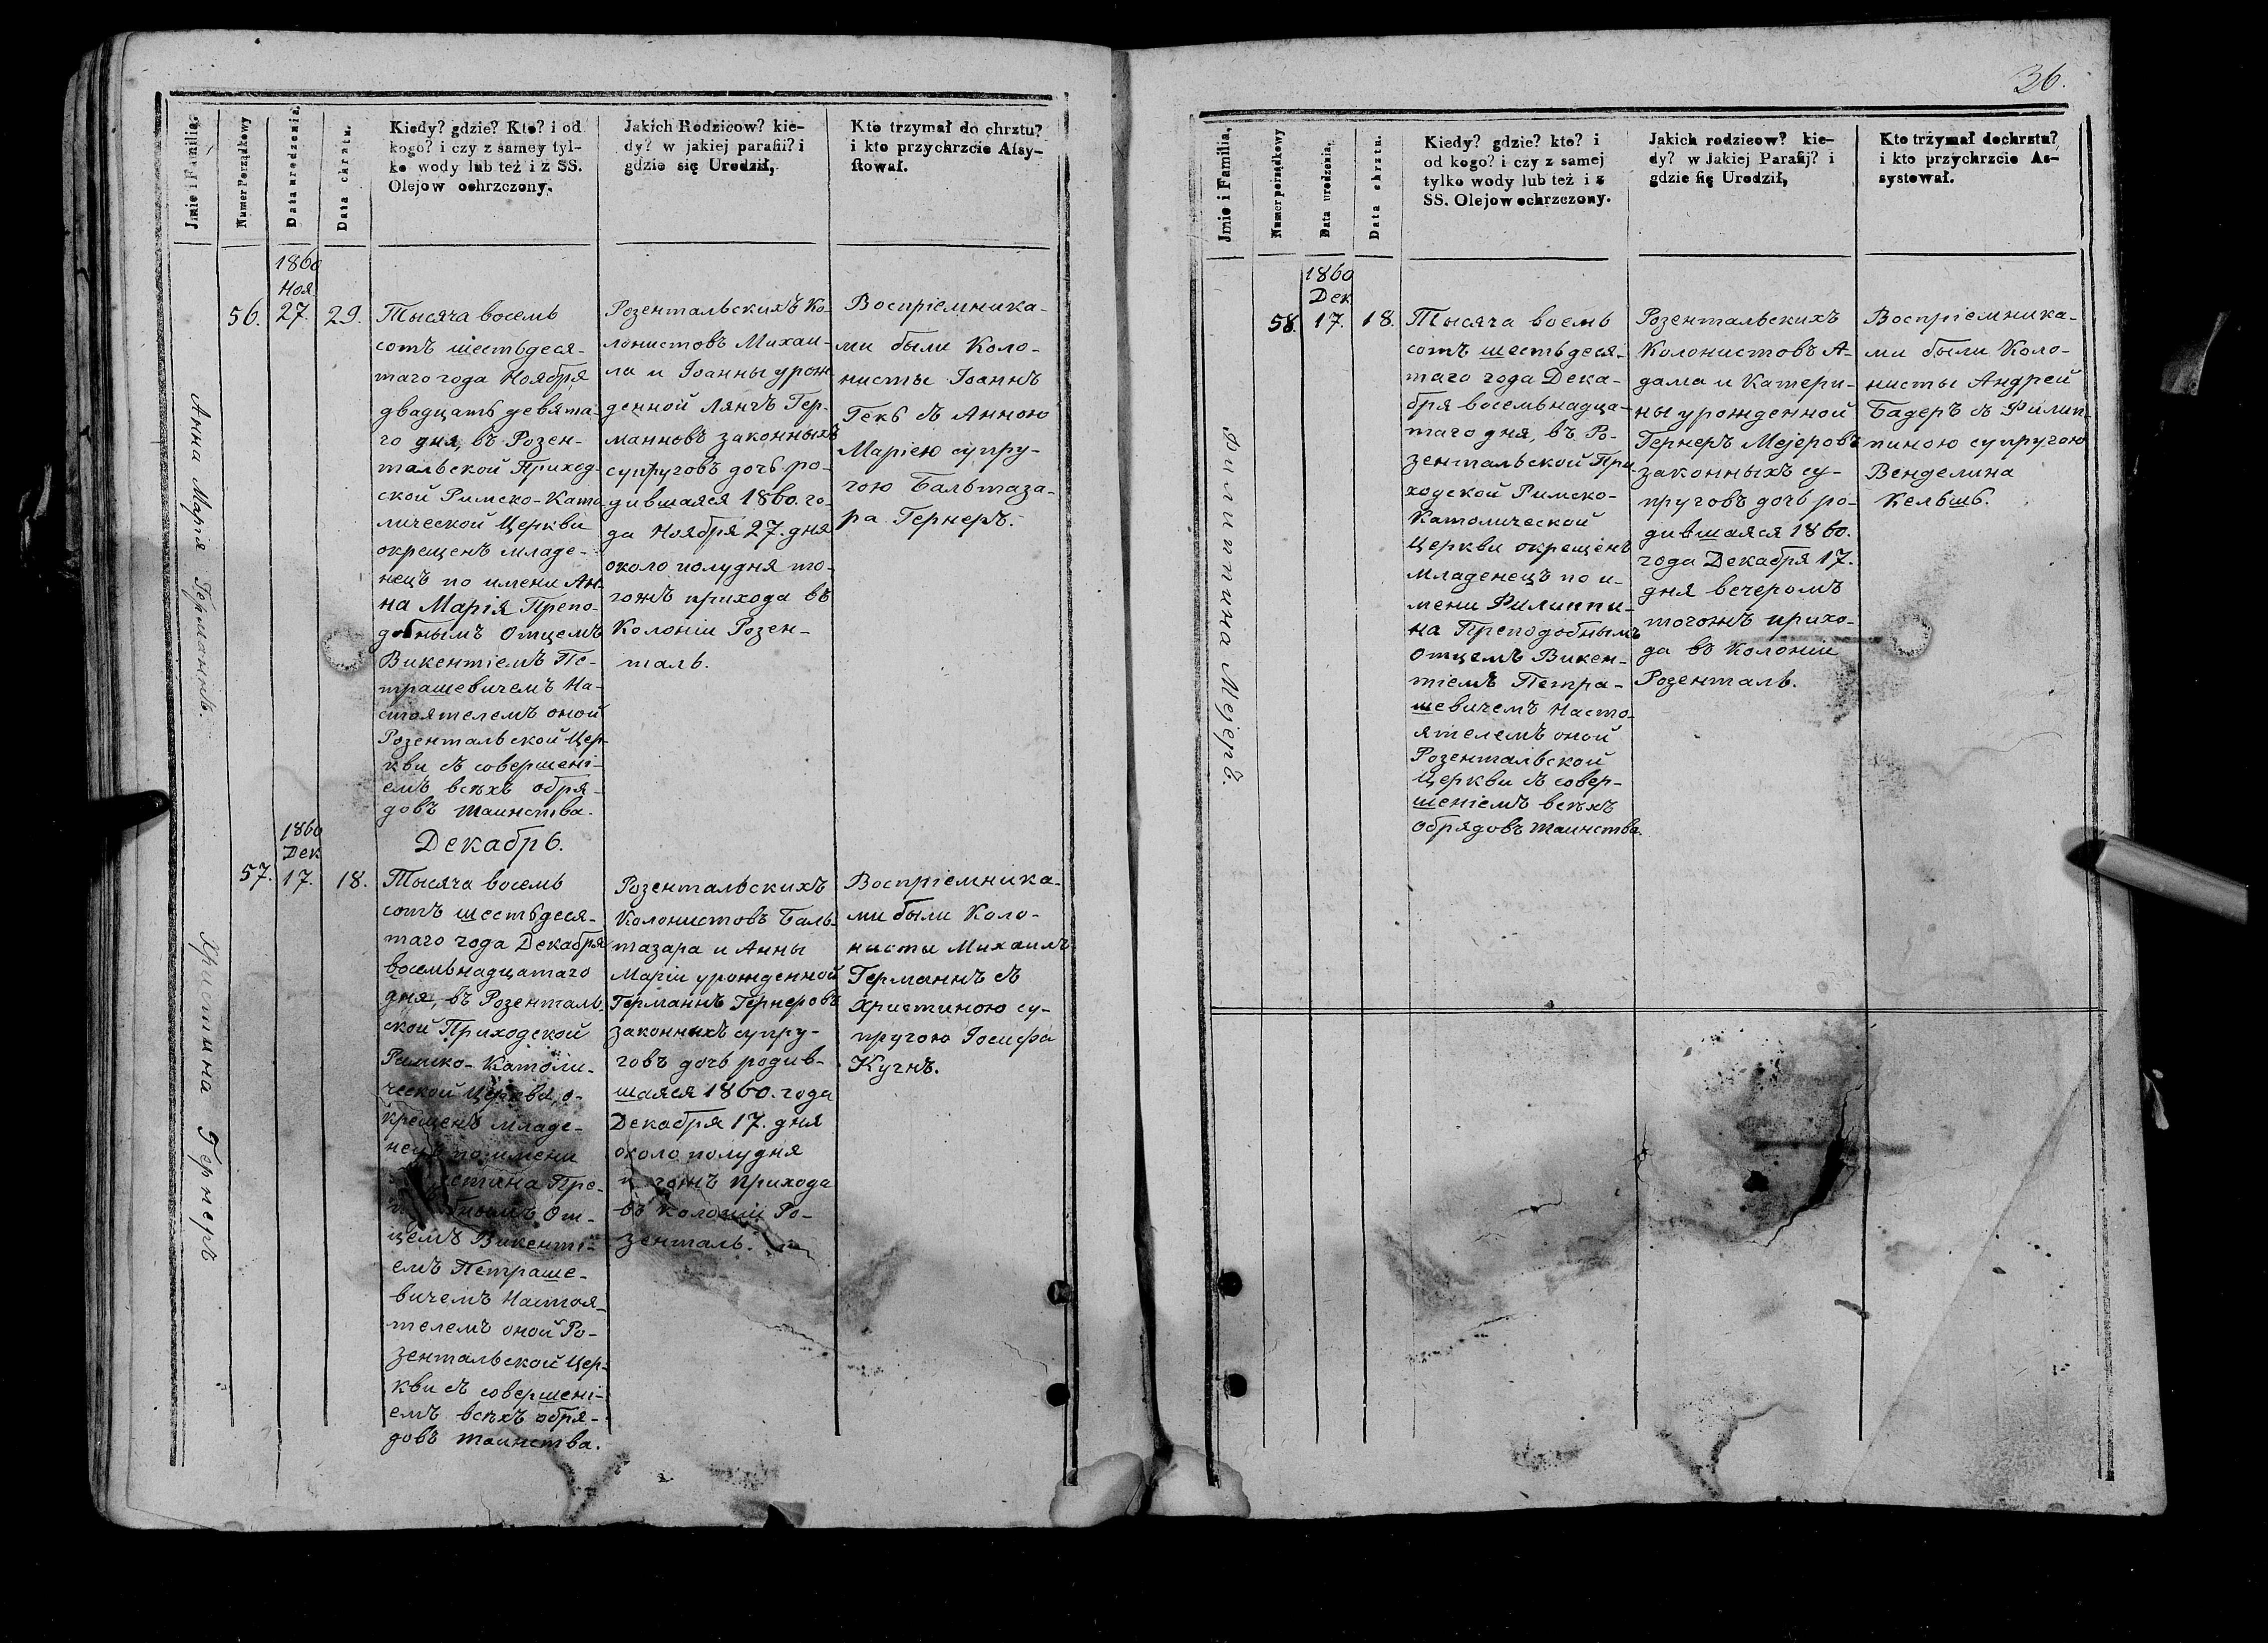 36.
Jmie i Familia,
Numer Porządkowy
Data urodzenia,
Data chrztu.
Kiedy? gdzie? Kto? i od
kogo? i czy z samey tyl-
ko wody lub też i z SS.
Olejow ochrzczony.
Jakich Rodzicow? kie-
dy? w jakiej parafii? i
gdzie się Urodził,
Kto trzymał do chrztu?
i kto przychrzcie Afsy-
ftował.
Анна Марія Германнъ.
56.
1860
Ноя
27.
29.
Тысяча восемь
сотъ шестьдеся-
таго года Ноября
двадцать девята-
го дня, въ Розен-
тальской Приход-
ской Римско-Като
лической Церкви
окрещенъ младе-
нецъ по имени Ан-
на Марія Препо-
добнымъ Отцемъ
Викентіемъ Пе-
трашевичемъ На-
стоятелемъ оной
Розентальской Цер-
кви съ совершені-
емъ всѣхъ обря-
довъ таинства.
Розентальскихъ Ко-
лонистовъ Михаи-
ла и Іоанны урож
денной Лянгъ Гер-
манновъ законныхъ
супруговъ дочь ро-
дившаяся 1860. го-
да Ноября 27. дня
около полудня то-
гожъ прихода въ
Колоніи Розен-
таль.
Воспріемника-
ми были Коло-
нисты Іоаннъ
Гекъ съ Анною
Маріею супру-
гою Бальтаза-
ра Гернеръ.
Декабрь.
Христина Гернеръ
57.
1860
Дек
17.
18.
Тысяча восемь
сотъ шестьдеся-
таго года Декабря
восемьнадцатаго
дня, въ Розенталь
ской Приходской
Римско-Католи-
ческой Церкви, о-
крещенъ младе-
нецъ по имени
стина Пре-
От-
цемъ Викенті-
емъ Петраше-
вичемъ Настоя-
телемъ оной Ро-
зентальской Цер-
кви съ совершені-
емъ всѣхъ обря-
довъ таинства.
Розентальскихъ
Колонистовъ Баль-
тазара и Анны
Маріи урожденной
Германнъ Гернеровъ
законныхъ супру-
говъ дочь родив-
шаяся 1860. года
Декабря 17. дня
около полудня
гожъ прихода
въ Колоніи Ро-
зенталь.
Воспріемника-
ми были Коло-
нисты Михаилъ
Германнъ съ
Христиною су-
пругою Іосифа
Кугнъ.
Jmie i Familia,
Numer porządkowy
Data urodzenia,
Data chrztu.
Kiedy? gdzie? kto? i
od kogo? i czy z samej
tylko wody lub też i z
SS. Olejow ochrzczony.
Jakich rodzicow? kie-
dy? w Jakiej Parafij? i
gdzie fię Urodził,
Kto trżymał dochrztu?
i kto przychrzcie As-
systował.
Филиппина Мејеръ.
58.
1860
Дек
17.
18.
Тысяча восмь
сотъ шестьдеся-
таго года Дека-
бря восемьнадца-
таго дня, въ Ро-
зентальской При
ходской Римско-
Католической
Церкви окрещенъ
Младенецъ по и-
мени Филиппи-
на Преподобнымъ
Отцемъ Викен-
тіемъ Петра-
шевичемъ Насто-
ятелемъ оной
Розентальской
Церкви съ совер-
шеніемъ всѣхъ
обрядовъ таинства.
Розентальскихъ
Колонистовъ А-
дама и Катери-
ны урожденной
Гернеръ Мејеровъ
законныхъ су-
пруговъ дочь ро-
дившаяся 1860.
года Декабря 17.
дня вечеромъ
тогожъ прихо-
да въ Колоніи
Розенталь.
Воспріемника-
ми были Коло-
нисты Андрей
Бадеръ съ Филип-
пиною супругою
Венделина
Кельшъ.